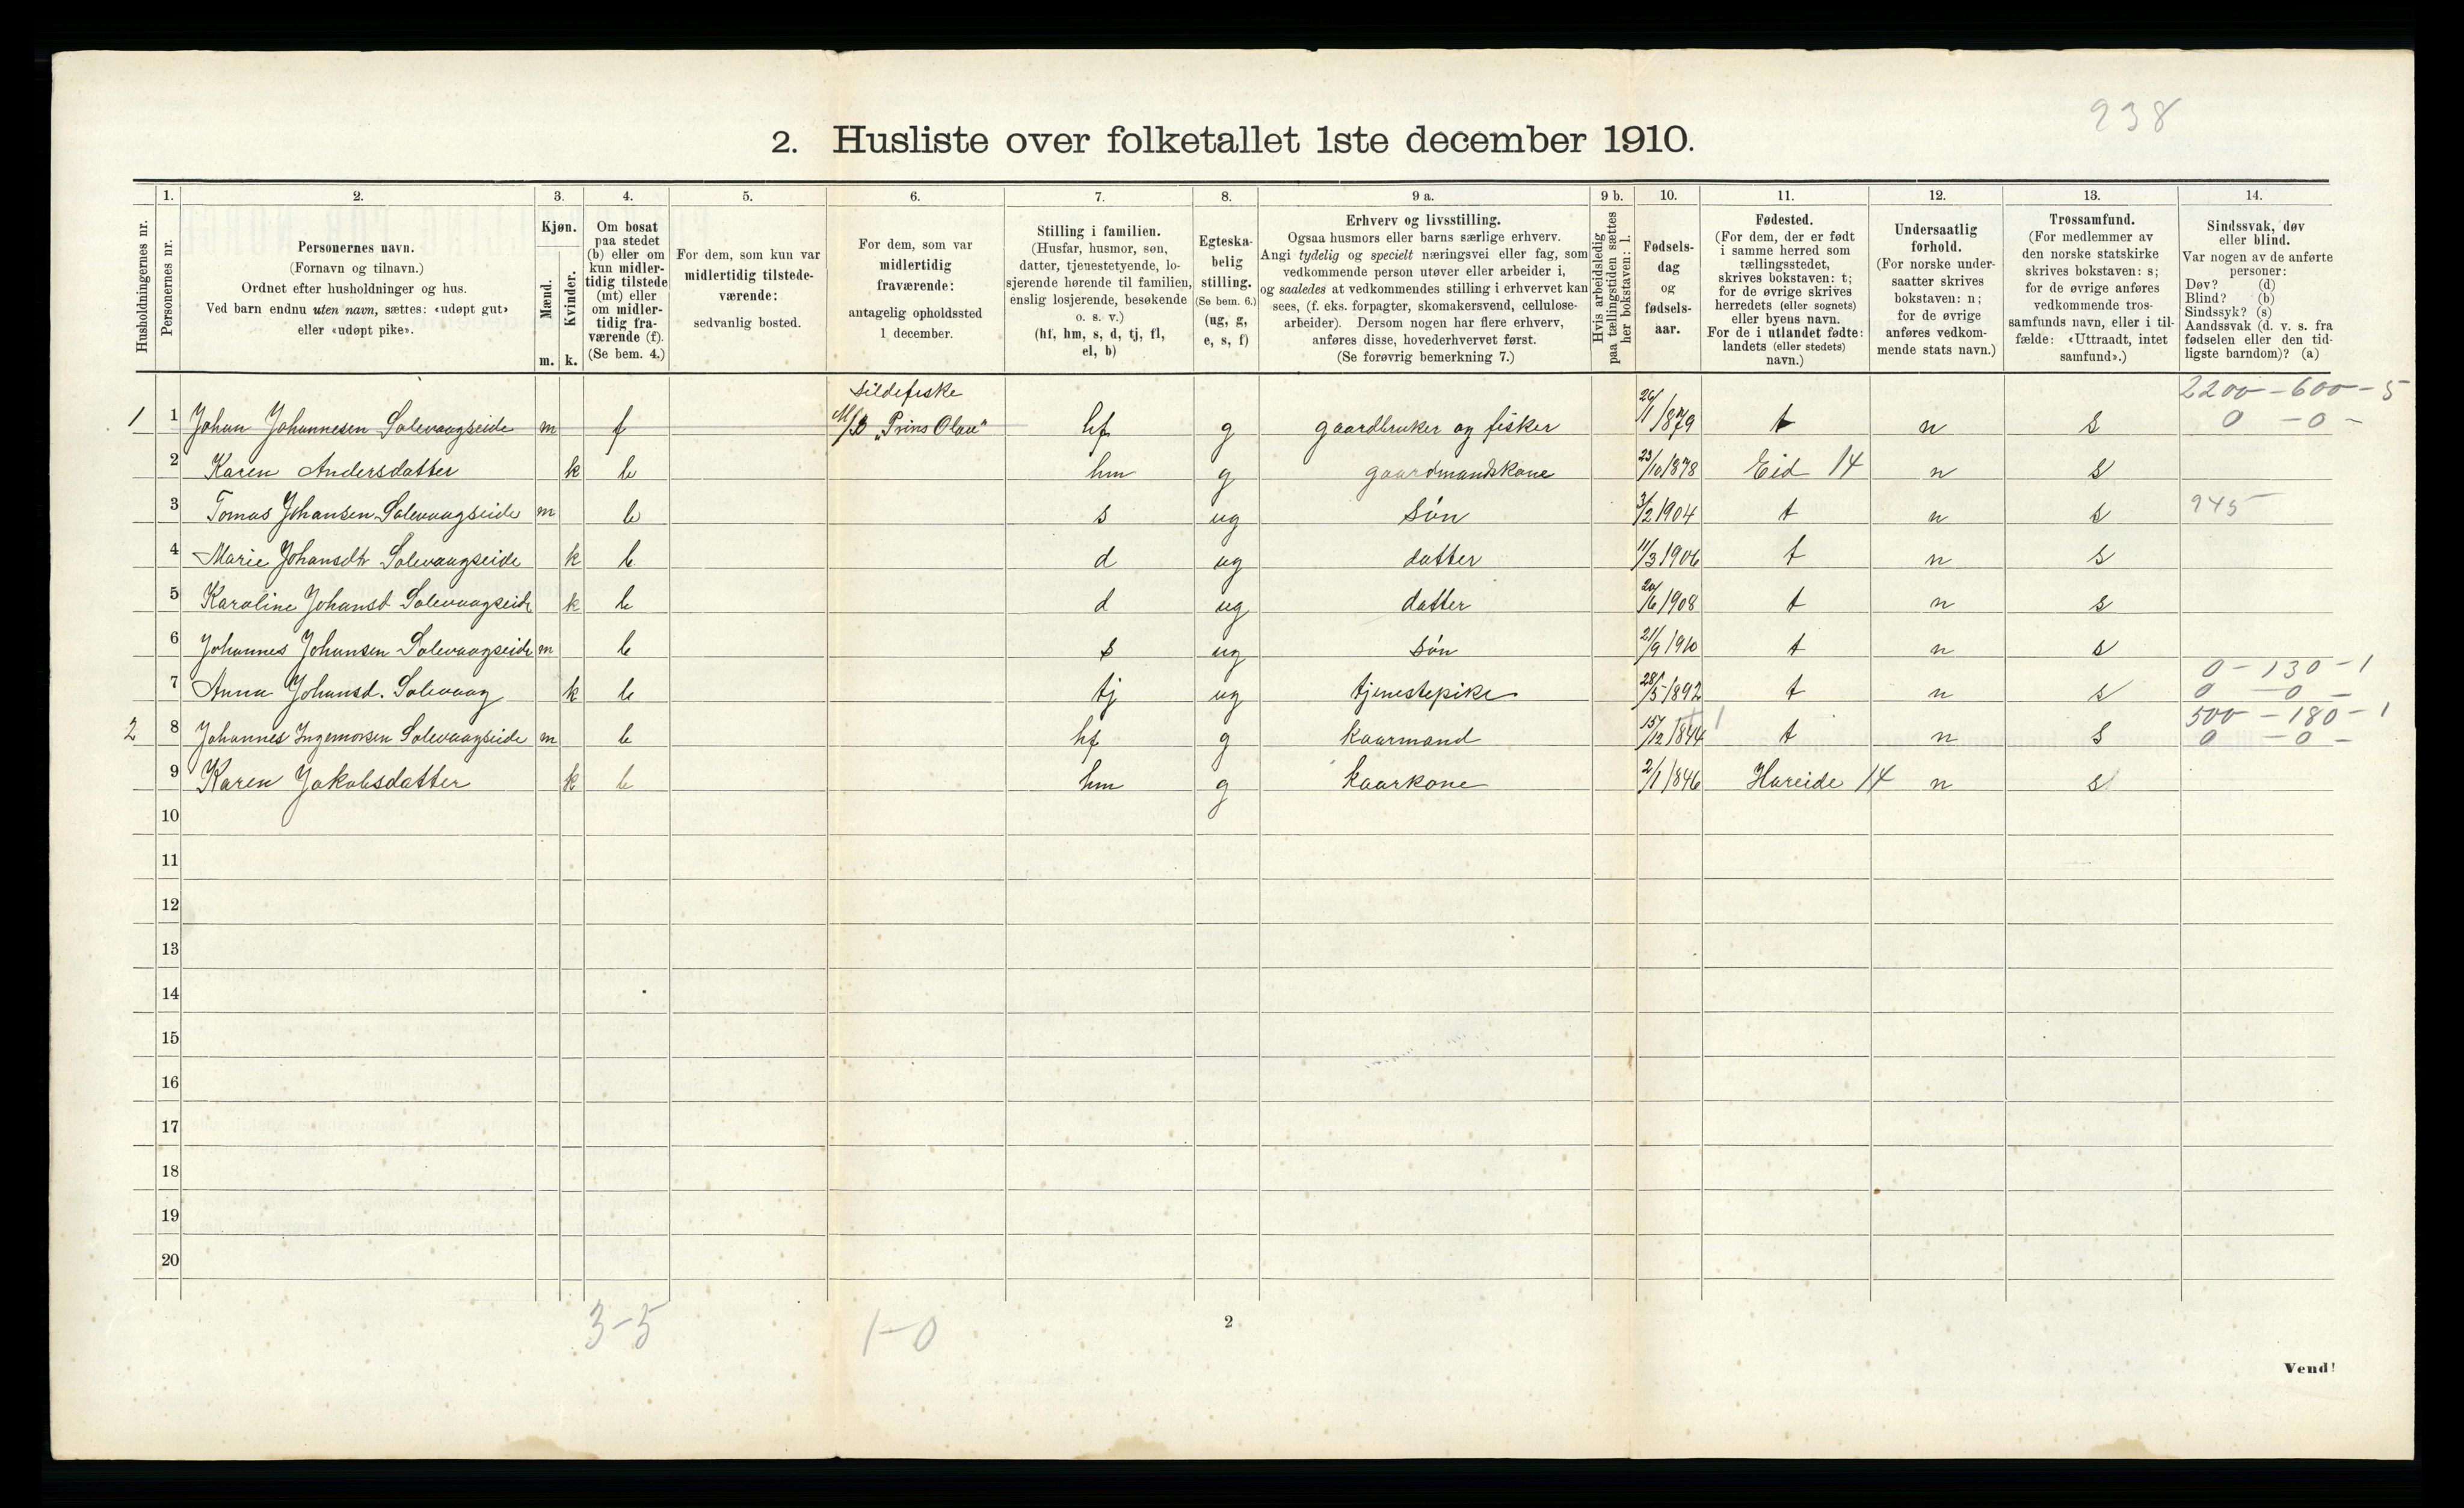 238
2. Husliste over folketallet 1ste december 1910.
Husholdningernes nr.
1.
Personernes nr.
2.
Personernes navn.
(Fornavn og tilnavn.)
Ordnet efter husholdninger og hus.
Ved barn endnu uten navn, sættes: «udøpt gut»
eller «udøpt pike».
3.
Kjøn.
Mænd.
Kvinder.
m. k.
4.
Om bosat
paa stedet
(b) eller om
kun midler-
tidig tilstede
(mt) eller
om midler-
tidig fra-
værende (f).
(Se bem. 4.)
5.
For dem, som kun var
midlertidig tilstede-
værende:
sedvanlig bosted.
6.
For dem, som var
midlertidig
fraværende:
antagelig opholdssted
1 december.
7.
Stilling i familien.
(Husfar, husmor, søn,
datter, tjenestetyende, lo-
sjerende hørende til familien,
enslig losjerende, besøkende
o. s. v.)
(hf, hm, s, d, tj, fl,
el, b)
8.
Egteska-
belig
stilling.
(Se bem. 6.)
(ug, g,
e, s, f)
9 a.
Erhverv og livsstilling.
Ogsaa husmors eller barns særlige erhverv.
Angi tydelig og specielt næringsvei eller fag, som
vedkommende person utøver eller arbeider i,
og saaledes at vedkommendes stilling i erhvervet kan
sees, (f. eks. forpagter, skomakersvend, cellulose-
arbeider). Dersom nogen har flere erhverv,
anføres disse, hovederhvervet først.
(Se forøvrig bemerkning 7.)
9 b.
Hvis arbeidsledig
paa tællingstiden sættes
her bokstaven: l.
10.
Fødsels-
dag
og
fødsels-
aar.
11.
Fødested.
(For dem, der er født
i samme herred som
tællingsstedet,
skrives bokstaven: t;
for de øvrige skrives
herredets (eller sognets)
eller byens navn.
For de i utlandet fødte:
landets (eller stedets)
navn.)
12.
Undersaatlig
forhold.
(For norske under-
saatter skrives
bokstaven: n;
for de øvrige
anføres vedkom-
mende stats navn.)
13.
Trossamfund.
(For medlemmer av
den norske statskirke
skrives bokstaven: s;
for de øvrige anføres
vedkommende tros-
samfunds navn, eller i til-
fælde: «Uttraadt, intet
samfund».)
14.
Sindssvak, døv
eller blind.
Var nogen av de anførte
personer:
Døv? (d)
Blind? (b)
Sindssyk? (s)
Aandssvak (d. v. s. fra
fødselen eller den tid-
ligste barndom)? (a)
Sildefiske 2200 - 600 - 5
1 1 Johan Johannesen Solevaagseide m f M/B „Prins Olav" hf g gaardbruker og fisker 26/1 1879 t n s 0 - 0 -
2 Karen Andersdatter k b hm g gaardmandskone 23/10 1878 Eid 14 n s
3 Tomas Johansen Solevaagseide m b s ug søn 3/2 1904 t n s 945
4 Marie Johansdtr Solevaagseide k b d ug datter 11/3 1906 t n s
5 Karoline Johansd Solevaagseide k b d ug datter 20/6 1908 t n s
6 Johannes Johansen Solevaagseide m b s ug søn 21/9 1910 t n s
0 - 130 - 1
7 Anna Johansd. Solevaag k b tj ug tjenestepike 28/5 1892 t n s 0 - 0 -
500 - 180 - 1
2 8 Johannes Ingemorsen Solevaagseide m b hf g kaarmand 15/12 1844 t n s 0 - 0 -
9 Karen Jakobsdatter k b hm g kaarkone 2/1 1846 Hareide 14 n s
10
11
12
13
14
15
16
17
18
19
20
3-5 1-0
2
Vend!